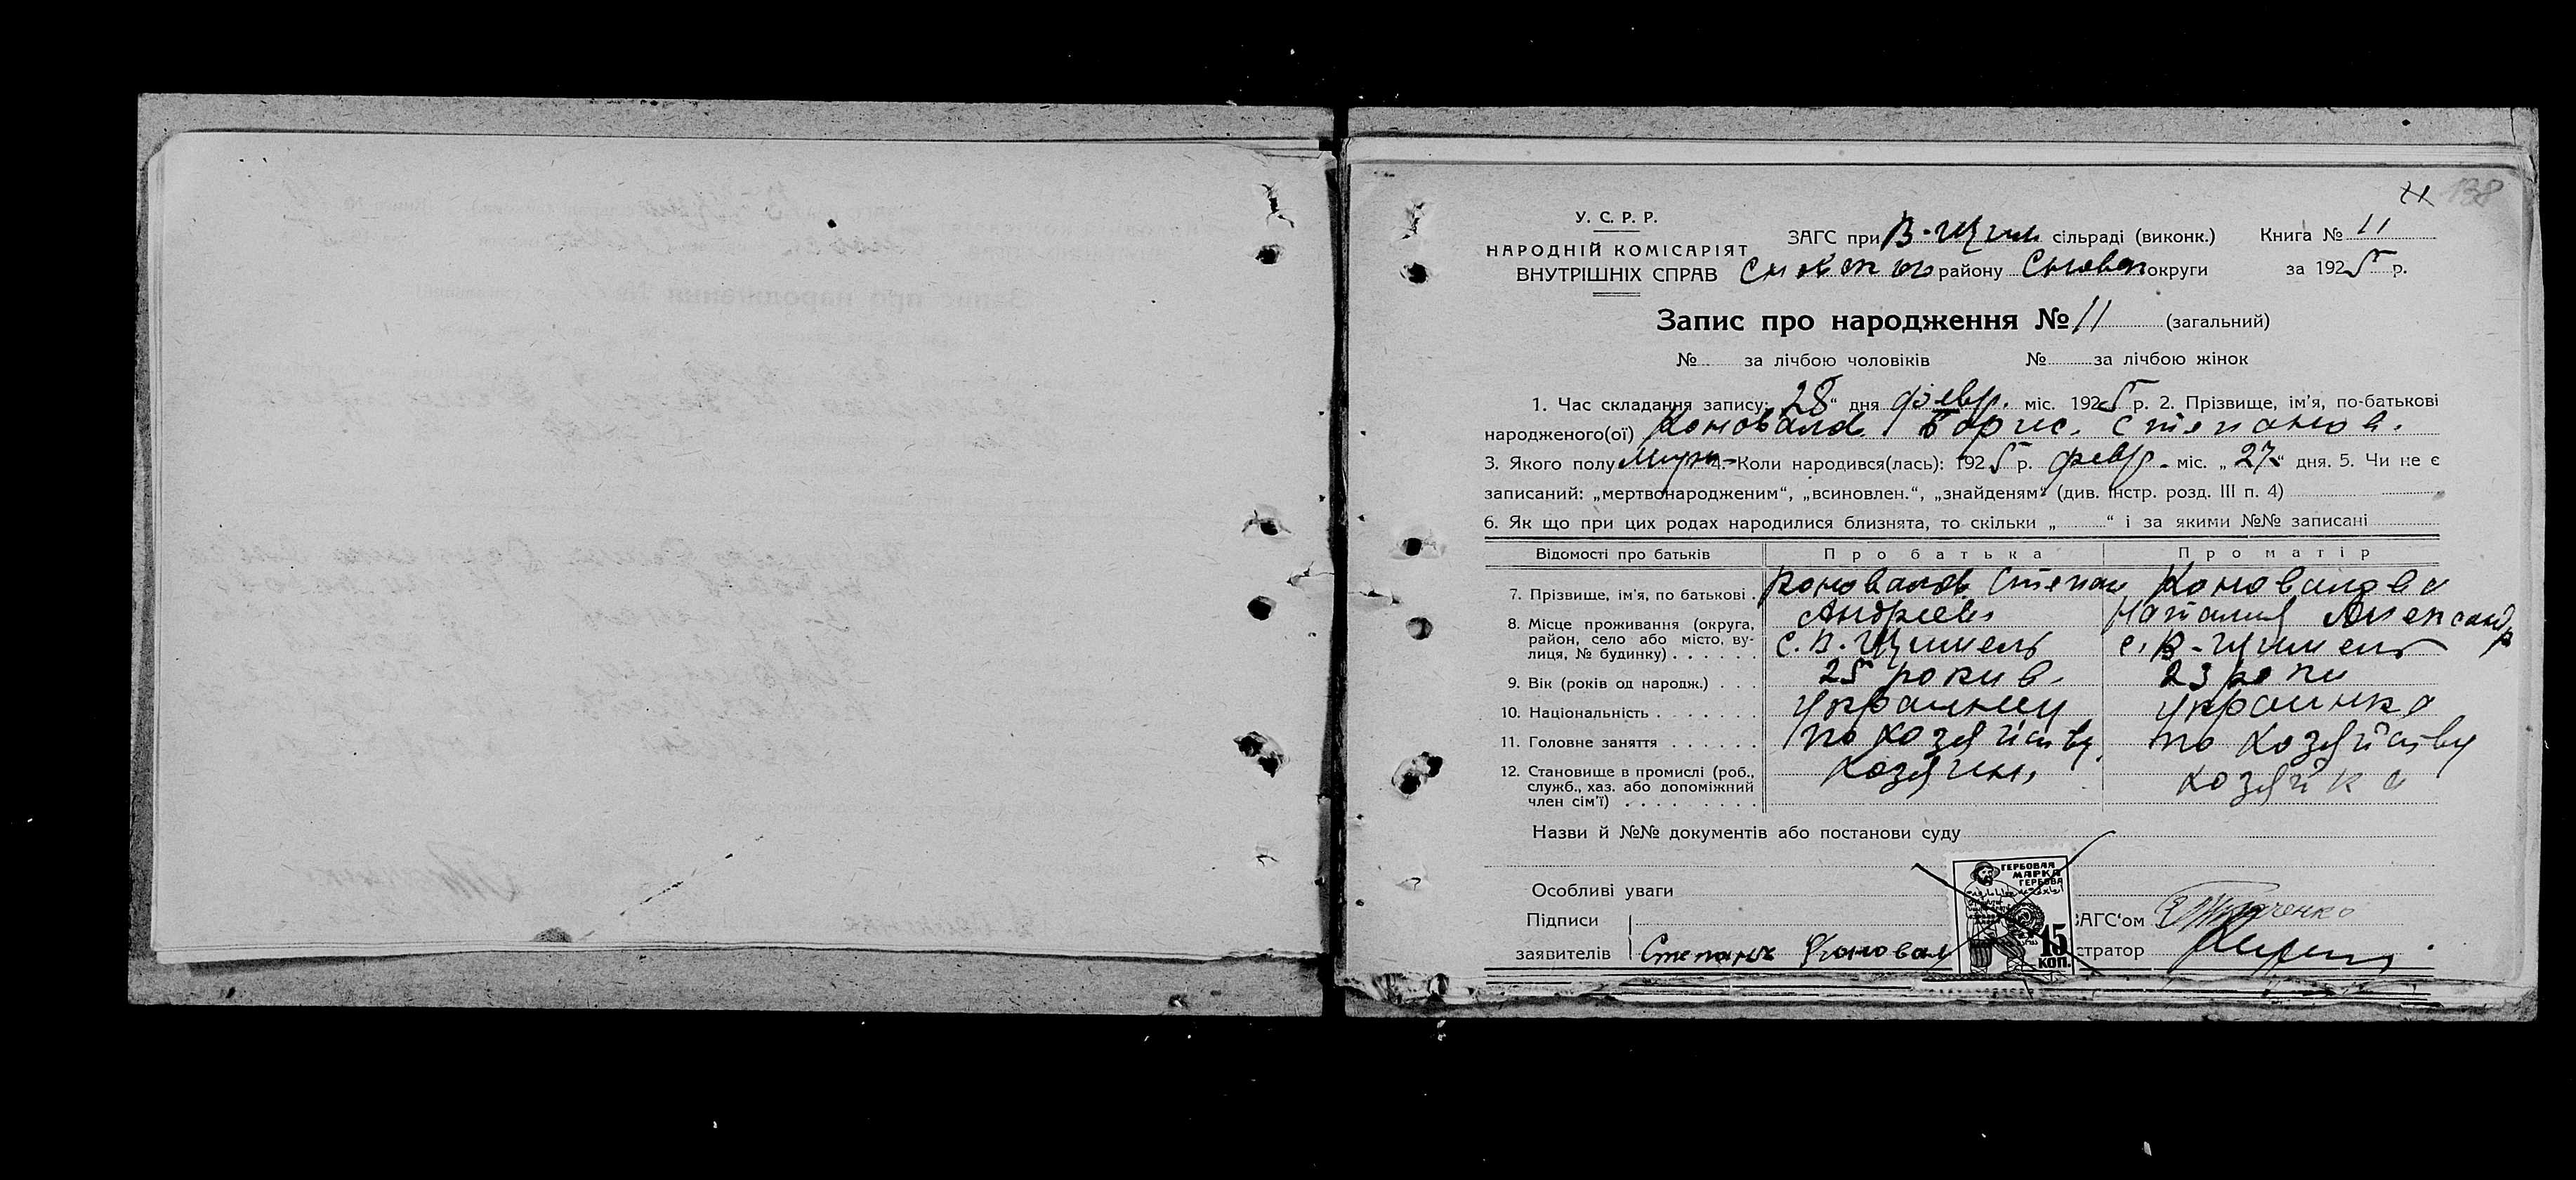 138
У. С. Р. Р.
НАРОДНІЙ КОМІСАРІЯТ
ВНУТРІШНІХ СПРАВ
ЗАГС при В-Щим сільраді (виконк.) Книга № 11
району Сновск округи за 1925 р.
Запис про народження № 11 (загальний)
№ за лічбою чоловіків № за лічбою жінок
1. Час складання запису: „28“ дня февр. міс. 1925 р. 2. Прізвище, ім'я, по-батькові
народженого(ої) Коновалов Борис. Степанов.
3. Якого полу Муж- 4. Коли народився(лась): 1925 р. февр. міс. „27“ дня. 5. Чи не є
записаний: „мертвонародженим“, „всиновлен.“, „знайденям“ (див. інстр. розд. III п. 4)
6. Як що при цих родах народилися близнята, то скільки „ “ і за якими №№ записані
Відомості про батьків Про батька Про матір
7. Прізвище, ім'я, по батькові . Коновалов Степан Коновалова
Андріев Наталия Александр
8. Місце проживання (округа, район, село або місто, вулиця, № будинку) . . . . . . с. В. Щимель с. В-Щимель
9. Вік (років од народж.) . . . 25 рокив. 23 роки
10. Національність . . . . . . . Украинец украинка
11. Головне заняття . . . . . . по хозяйству по хозяйству
12. Становище в промислі (роб., служб., хаз. або допоміжний член сім'ї) . . . . . . . . . хозяин, хозяйка
Назви й №№ документів або постанови суду
Особливі уваги
ГЕРБОВАЯ
МАРКА
ГЕРБОВА
15
КОП.
Підписи
заявителів Степанъ Коновал
ЗАГС'ом
стратор